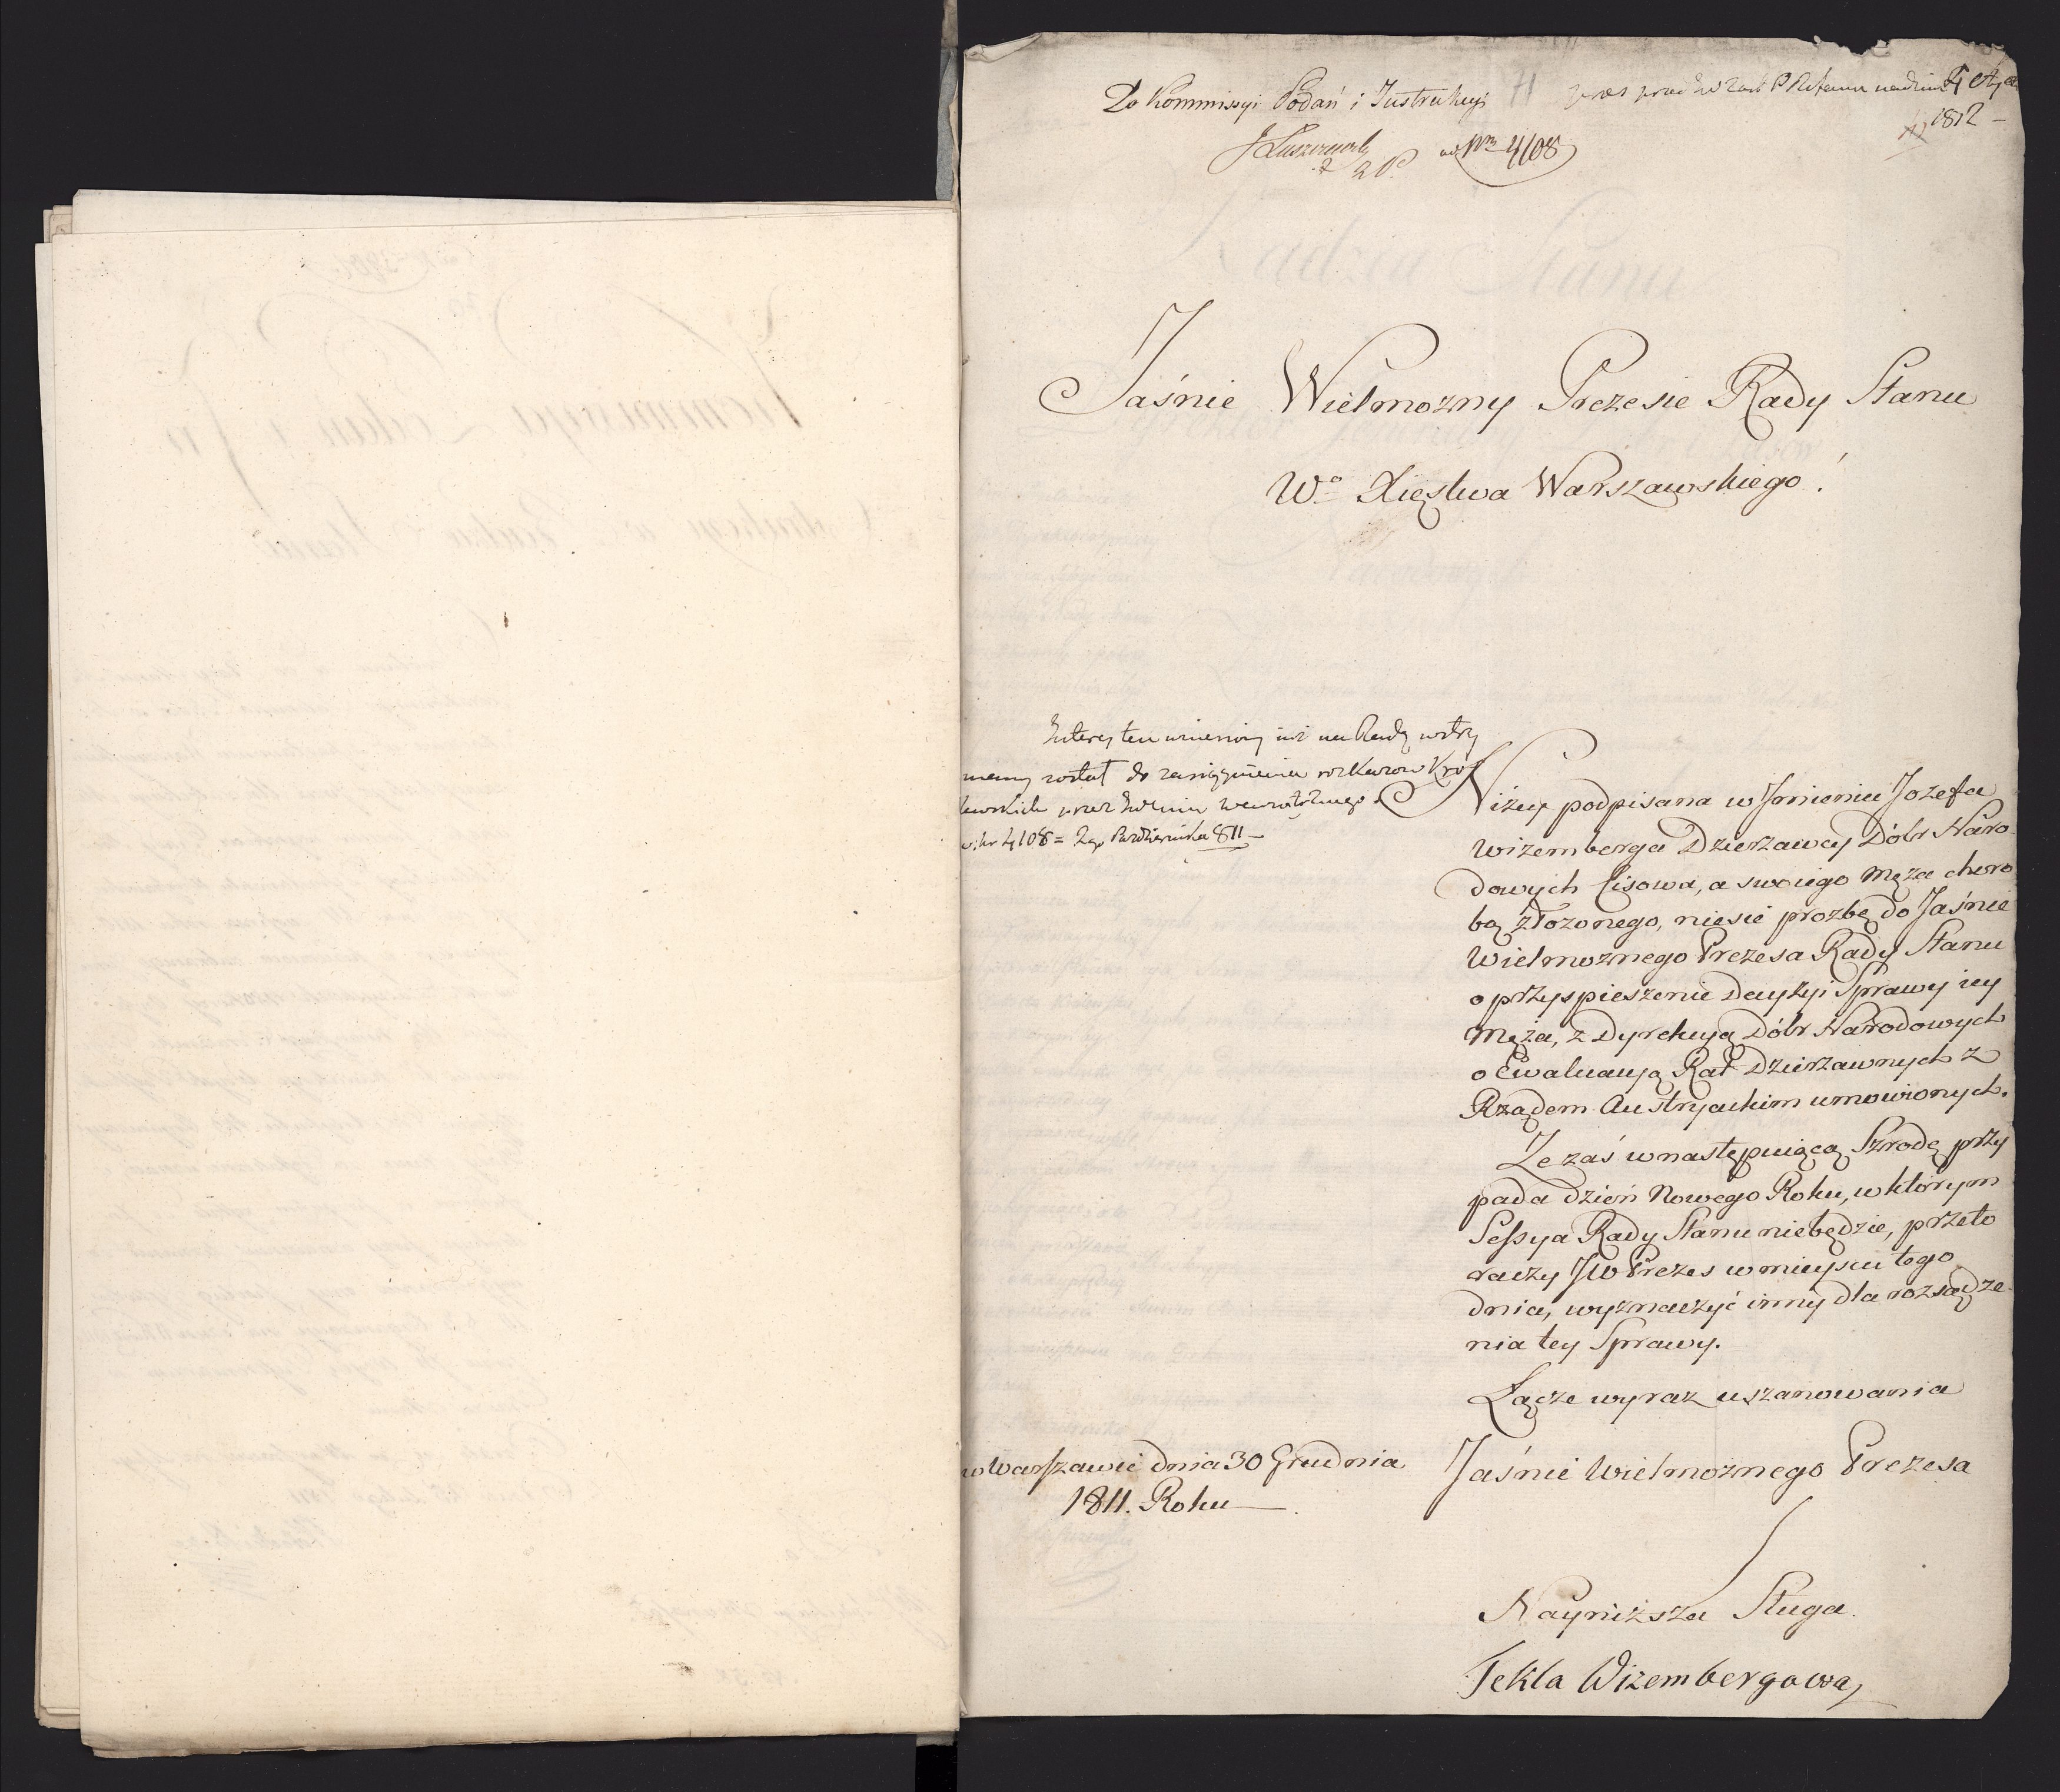 Do Kommissyi Podań i Instrukcyi 71
1812 –
ad Nrm 4108
Jaśnie Wielmozny Prezesie Rady Stanu
Wo Xięstwa Warszawskiego!
Interes ten wniesiony już na Radę wstrzy
many został do zasiągnienia rozkazow Kró
lewskich przez
v: Nr 4108 = 2go Października 811 –
Niżey podpisana w Jmieniu Jozefa
Wizemberga Dzierzawcy Dóbr Naro
dowych Lisowa, a swoiego Męza choro
bą złozonego, niesie prozbę do Jaśnie
Wielmoznego Prezesa Rady Stanu
o przyspieszenie Decyzyi Sprawy iey
Męża, z Dyrekcyą Dóbr Narodowych
o Ewaluacyą Rat Dzierzawnych z
Rządem Austryackim umowionych.
Ze zaś w następuiącą Szrodę przy
pada dzień Nowego Roku, w którym
Sessya Rady Stanu niebędzie, przeto
raczy JW Prezes w mieyscu tego
dnia, wyznaczyć inny dla rozsądze-
nia tey Sprawy.
Łącze wyraz uszanowania
w Warszawie dnia 30 Grudnia
1811. Roku
Jaśnie Wielmoznego Prezesa
Nayniższa Sługa.
Tekla Wizembergowa